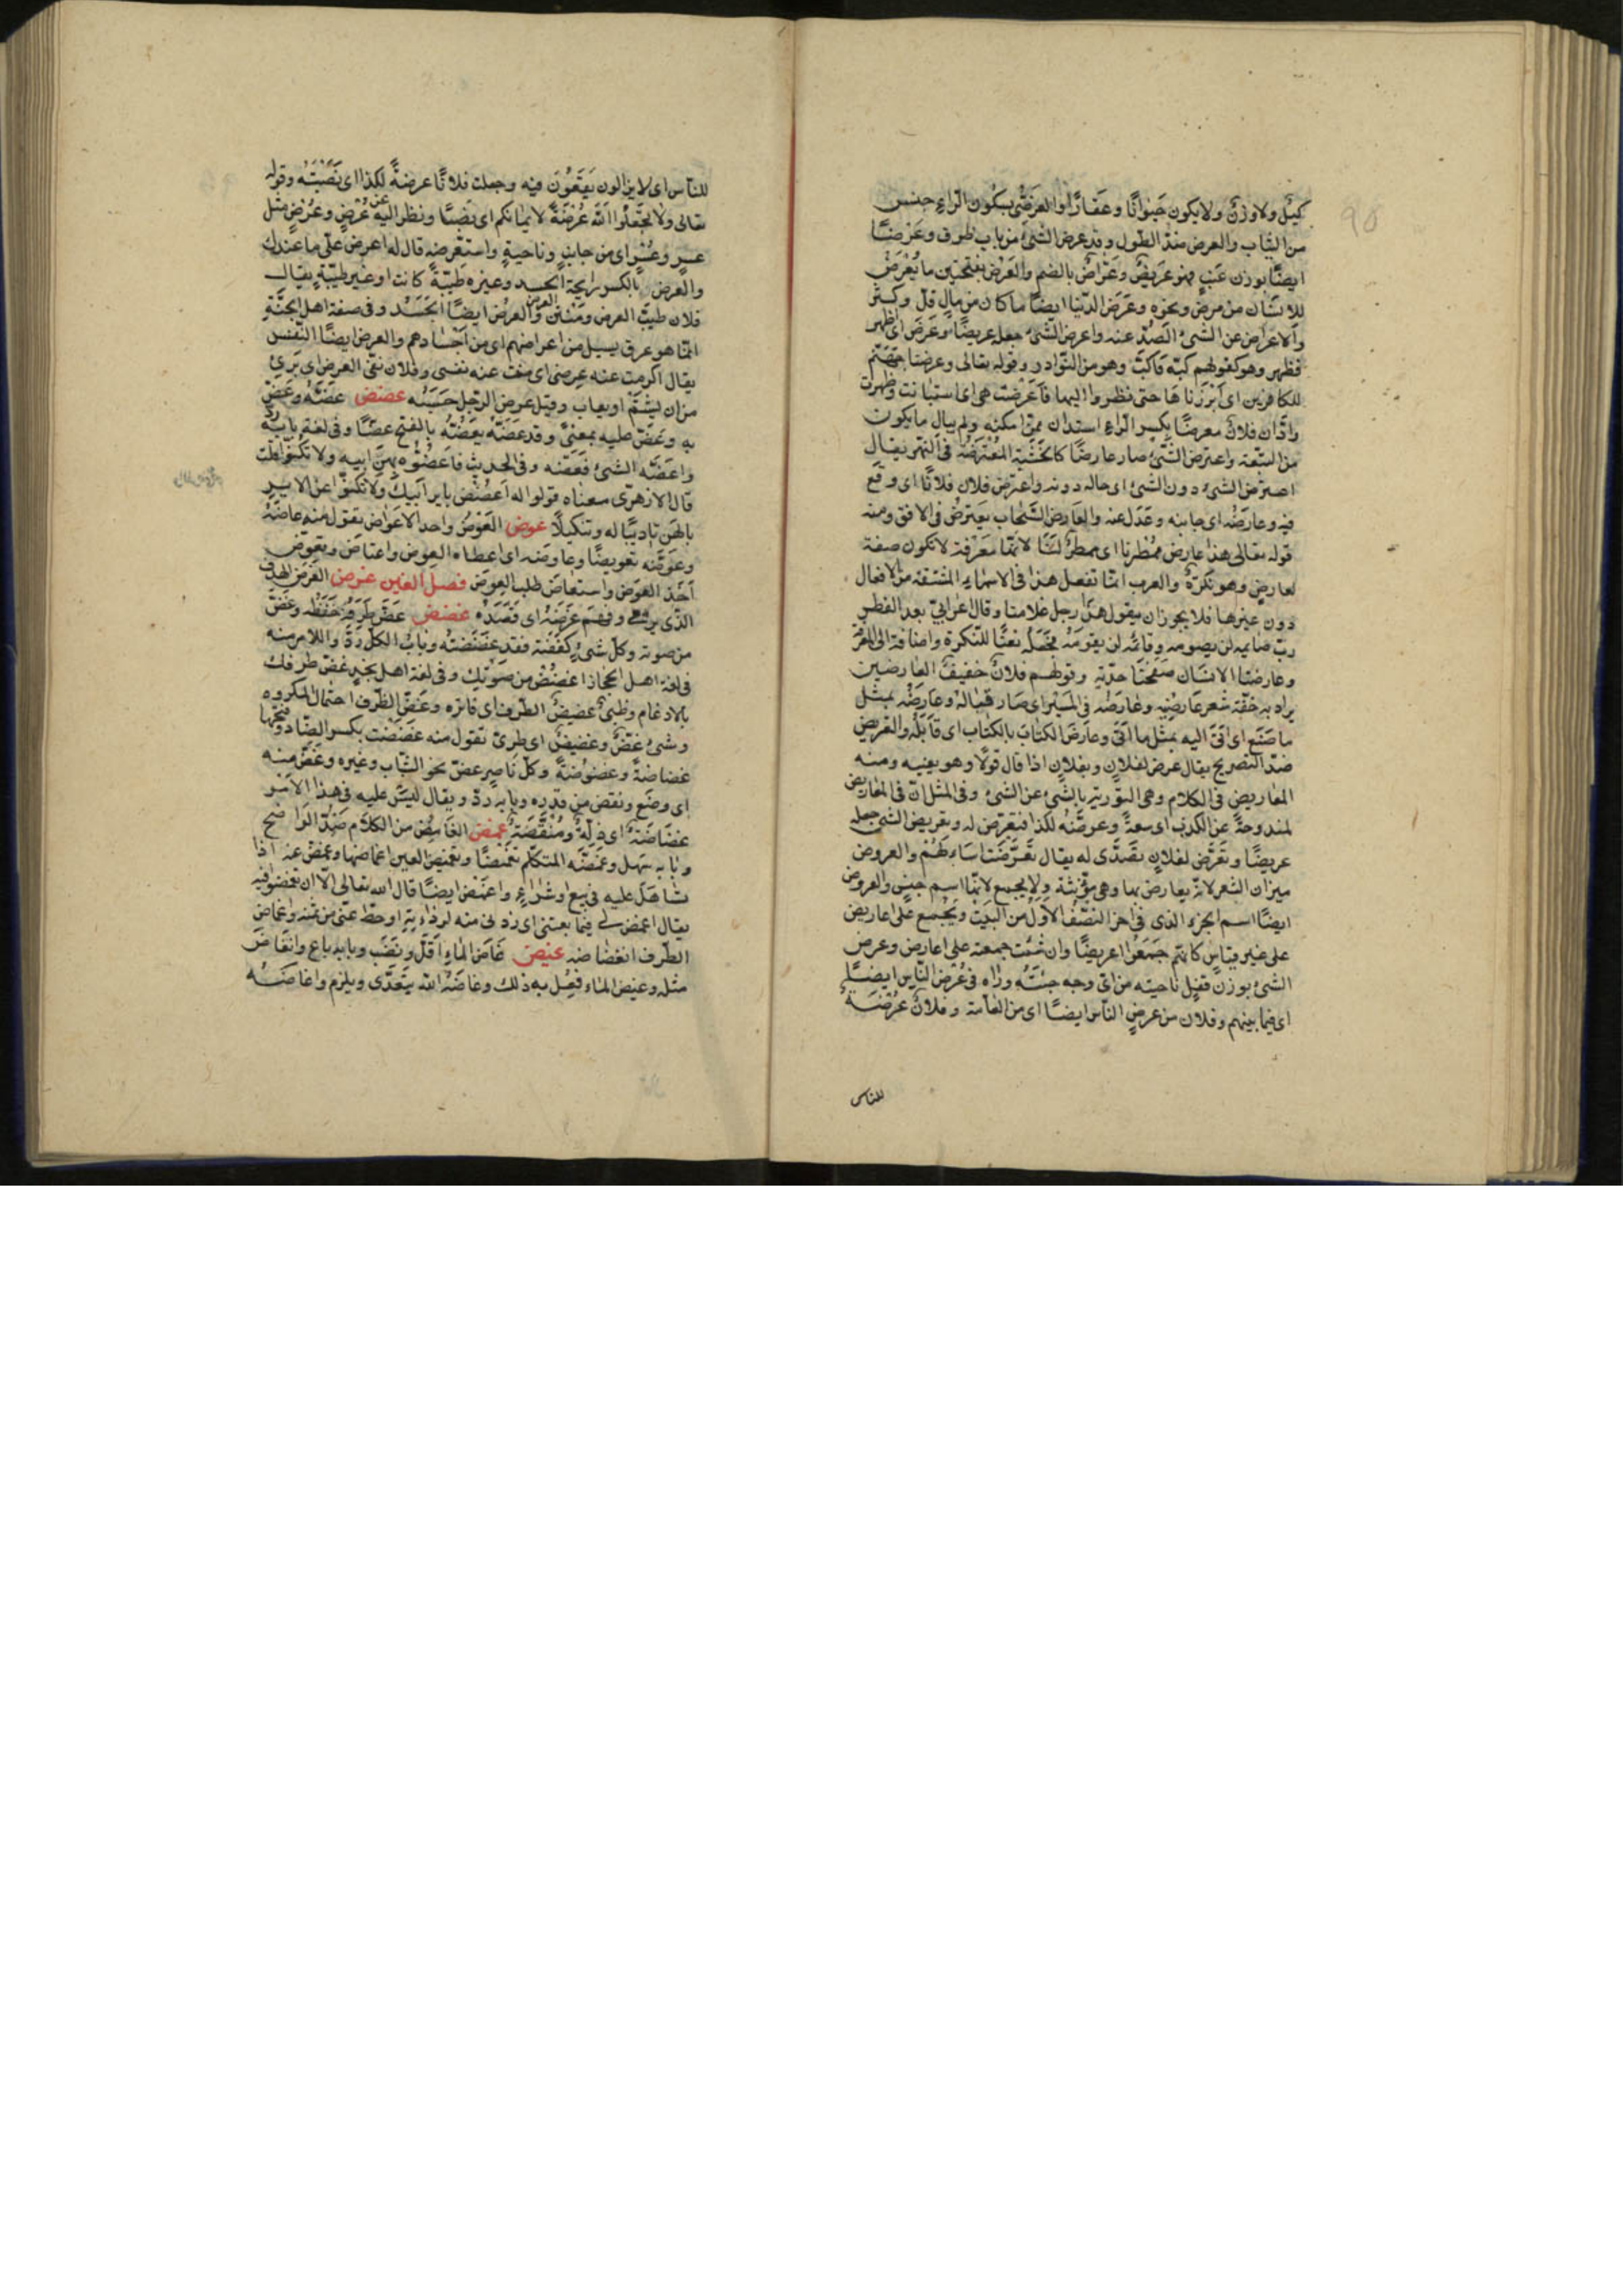 كيل ولا وزن ولا يكون حيوانًا وعقارًا والعرض بسكون الراء جنس
من الثياب والعرض ضد الطول وقد عرض الشئ من باب ظرف وعرضًا
ايضًا بوزن عنب فهو عريض وعراض بالضم والعرض بفتحتين ما يعرض
للانسان من مرض ونحوه وعرض الدنيا ايضًا ما كان من مال قلّ وكثر
والاعراض عن الشئ الصدّ عنه واعرض الشئ جعله عريضًا وعرض اى اظهر
فظهر وهو كقولهم كبّه فاكبّ وهو من النوادر وقوله تعالى وعرضنا جهنّم
للكافرين اى ابرزناها حتى نظروا اليها فاعرضت هى اى استبانت وظهرت
وادّان فلان معرضًا بكسر الراء استدان ممّن امكنه ولم يبال ما يكون
من التبعة واعترض الشئ صار عارضًا كالخشبة المعترضة فى النهر يقال
اعترض الشئ دون الشئ اى حال دونه واعترض فلان فلانًا اى وقع
فيه وعارضه اى جانبه وعدل عنه والعارض السّحاب يعترض فى الافق ومنه
قوله تعالى هذا عارض ممطرنا اى ممطر لنا لانّه معرفة لا يكون صفة
لعارض وهو نكرة والعرب انّما تفعل هذا فى الاسماء المشتقة من الافعال
دون غيرها فلا يجوز ان يقول هذا رجل غلامنا وقال اعرابىّ بعد الفطر
ربّ صايمه لن يصومه وقائمه لن يقومه فجعله نعتًا للنكرة واضافة الى المعرفة
وعارضتا الانسان صفحتا خدّيه وقولهم فلان خفيف العارضين
يراد به خفّة شعر عارضيه وعارضه فى المسير اى صار قباله وعارضه بمثل
ما صنع اى اتى اليه بمثل ما اتى وعارض الكتاب بالكتاب اى قابله والتعريض
ضدّ التصريح يقال عرض لفلان وبفلان اذا قال قولًا وهو يعنيه ومنه
المعاريض فى الكلام وهى التورية بالشئ عن الشئ وفى المثل انّ فى المعاريض
لمندوحة عن الكذب اى سعة وعرضه لكذا فتعرّض له وتعريض الشئ جعله
عريضًا وتعرّض لفلان تصدّى له يقال تعرّضت اسألهم والعروض
ميزان الشعر لانّه يعارض بها وهى مؤنثة ولا يجمع لانّها اسم جنس والعروض
ايضًا اسم الجزء الذى فى اخر النصف الاوّل من البيت ويجمع على اعاريض
على غير قياس كانّهم جمعوا اعريضًا وان شئت جمعته على اعارض وعرض
الشئ بوزن قفل ناحيته من اىّ وجه جئته وراه فى عرض الناس ايضًا
اى فيما بينهم وفلان من عرض الناس ايضًا اى من العامّة وفلان عرضة
للناس
للناس اى لا يزالون يقعون فيه وجعلت فلانًا عرضة لكذا اى نصبته وقوله
تعالى ولا تجعلوا الله عرضة لايمانكم اى نصبًا ونظر اليه عن عرض وعرض مثل
عسر وعسر اى من جانب وناحية واستعرضه قال له اعرض علىّ ما عندك
والعرض بالكسر رايحة الجسد وغيره طيّبة كانت او غير طيّبة يقال
فلان طيب العرض ومنتن العرض والعرض ايضًا الجسد وفى صفة اهل الجنة
انّما هو عرق يسيل من اعراضهم اى من اجسادهم والعرض ايضًا النفس
يقال اكرمت عنه عرضى اى صنت عنه نفسى وفلان نقىّ العرض اى برئ
من ان يشتم او يعاب وقيل عرض الرجل حسبه عضض عضّه وعضّ
به وعضّ عليه بمعنى وقد عضّه يعضّه بالفتح عضًّا وفى لغة بابه ردّ
واعضّه الشئ فعضّه وفى الحديث فاعضّوه بهن ابيه ولا تكنوا قلت
قال الازهرى معناه قولوا له اعضض باير ابيك ولا تكنوا عن الاير
بالهن تاديبًا له وتنكيلًا عوض العوض واحد الاعواض تقول منه عاضه
وعوّضه تعويضًا وعاوضه اى اعطاه العوض واعتاض وتعوّض
اخذ العوض واستعاض طلب العوض فصل الغين غرض الغرض الهدف
الذى يرمى وفهم غرضه اى قصده غضض غضّ طرفه خفظه وغضّ
من صوته وكل شئ كففته فقد غضضته وباب الكل ردّ والامر منه
فى لغة اهل الحجاز اغضض من صوتك وفى لغة اهل نجد غضّ طرفك
بالادغام وظبى غضيض الطرف اى فاتره وغضّ الطرف احتمال المكروه
وشئ غضّ وغضيض اى طرىّ تقول منه غضضت بكسر الضاد وفتحها
غضاضة وغضوضة وكلّ ناضر غضّ نحو الشّاب وغيره وغضّ منه
اى وضع ونقص من قدره وبابه ردّ ويقال ليس عليه فى هذا الامر
غضاضة اى ذلّة ومنقصة غمض الغامض من الكلام ضدّ الواضح
وبابه سهل وغمّضه المتكلم تغميضًا وتغميض العين اغماضها وغمض عنه اذا
تساهل عليه فى بيع او شراء واغمض ايضًا قال الله تعالى الّا ان تغمضوا فيه
يقال اغمض لى فيما بعتنى اى زدنى منه لرداءته او حطّ عنّى من ثمنه وانغماض
الطرف انغضاضه غيض غاض الماء اى قلّ ونضب وبابه باع وانغاض
مثله وغيض الماء فعل به ذلك وغاضه الله يتعدّى ويلزم واغاضه